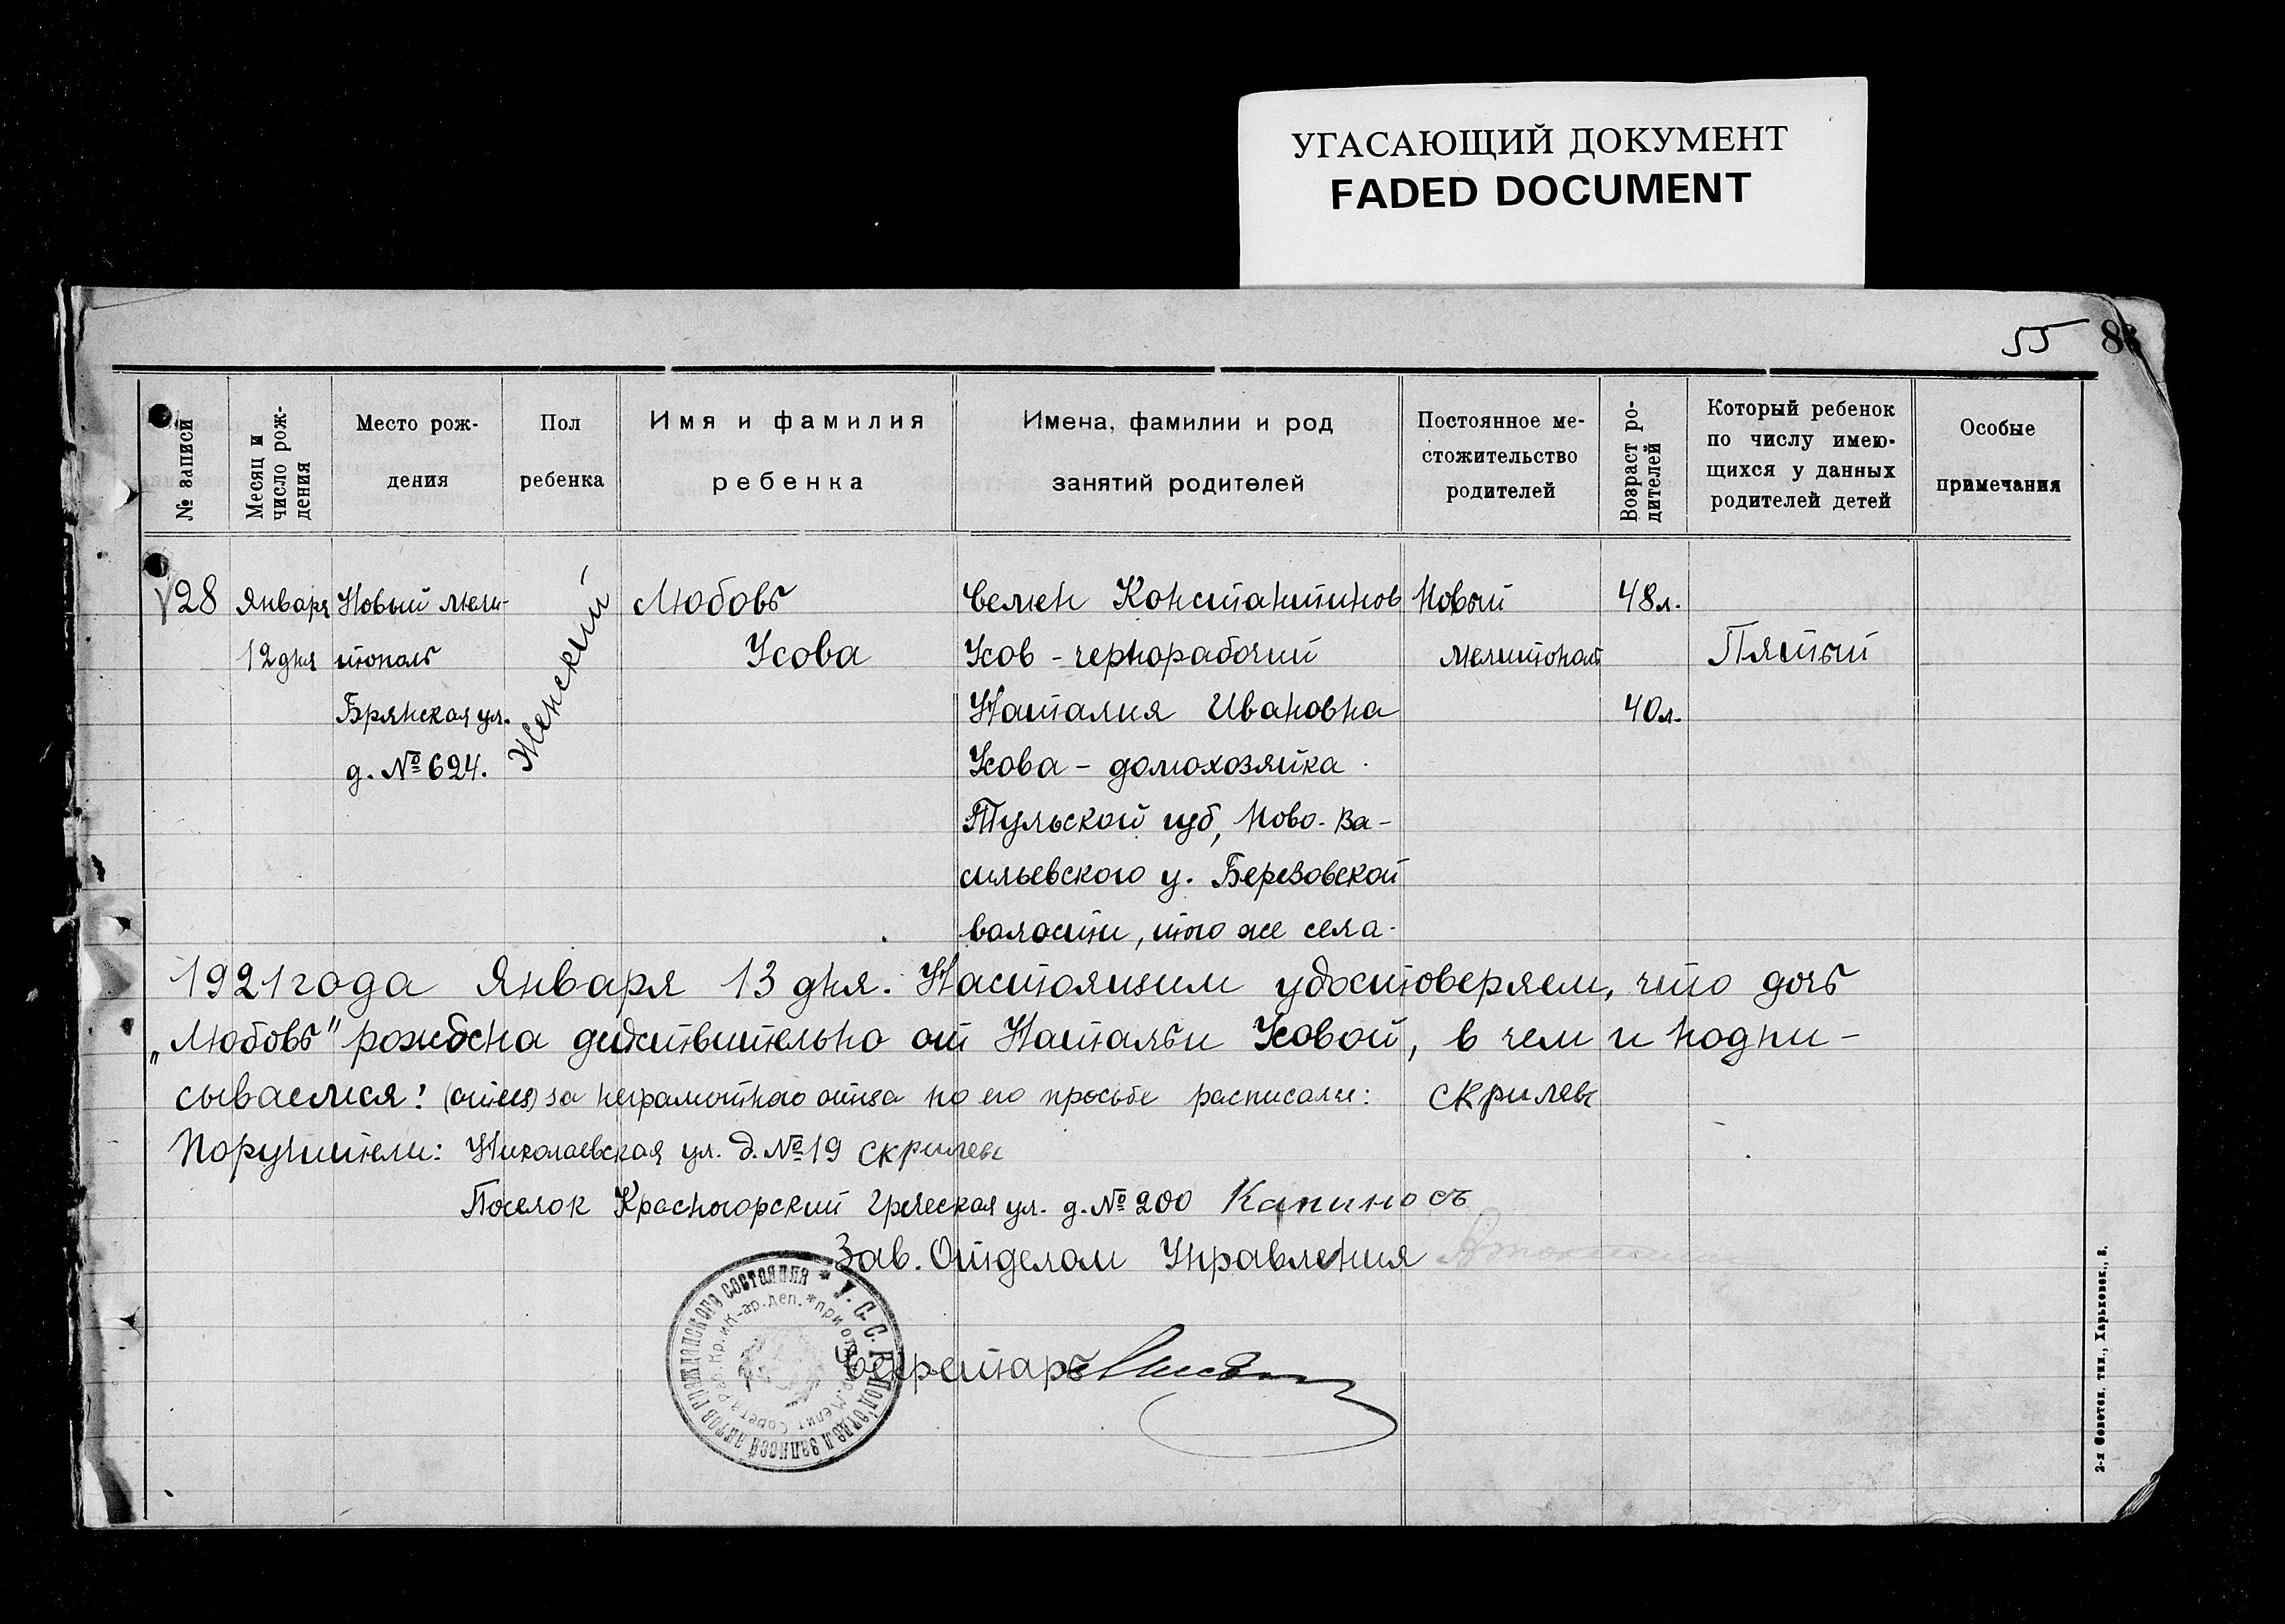 УГАСАЮЩИЙ ДОКУМЕНТ
FADED DOCUMENT
55
№ записи
Месяц и
число рож-
дения
Место рож-
дения
Пол
ребенка
Имя и фамилия
ребенка
Имена, фамилии и род
занятий родителей
Постоянное ме-
стожительство
родителей
Возраст ро-
дителей
Который ребенок
по числу имею-
щихся у данных
родителей детей
Особые
примечания
28
Января
12 дня
Новый Мели-
тополь
Брянская ул.
д. № 624.
Женский
Любовь
Усова
Семен Константинов
Усов - чернорабочий
Наталия Ивановна
Усова - домохозяйка.
Тульской губ, Ново-Ва-
сильевского у. Березовской
волости, того же села.
Новый
Мелитополь
48 л.
40 л.
Пятый
1921 года Января 13 дня. Настоящим удостоверяем, что дочь
„Любовь" рождена действительно от Натальи Усовой, в чем и подпи-
сываемся: (отец) за неграмотного отца по его просьбе расписался: Скрилев
Поручители: Николаевская ул. д. № 19 Скрилев
Поселок Красногорский Греческая ул. д. № 200 Капиносъ
Зав. Отделом Управления
Секретарь
У. С. С. Р. Под'отдел записей актов гражданского состояния
при отд. Мелит. Совета Раб. Кр. и К-ар. деп.
2-я Советск. тип., Харьковск., 8.